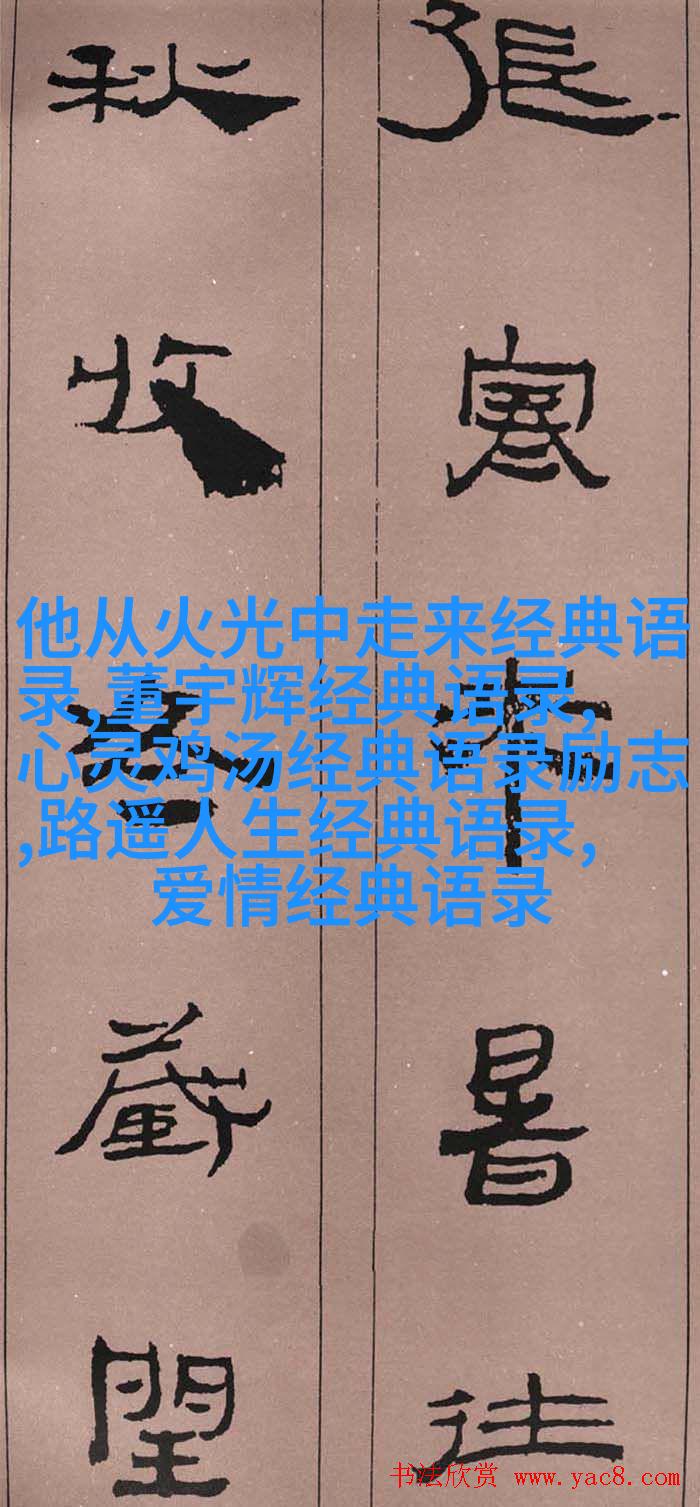 張寒来暑往
秋收冬藏閏
他从火光中走来经典语
录,董宇辉经典语录,
心灵鸡汤经典语录励志
,路遥人生经典语录,
爱情经典语录
书法欣赏 www.yac8.com